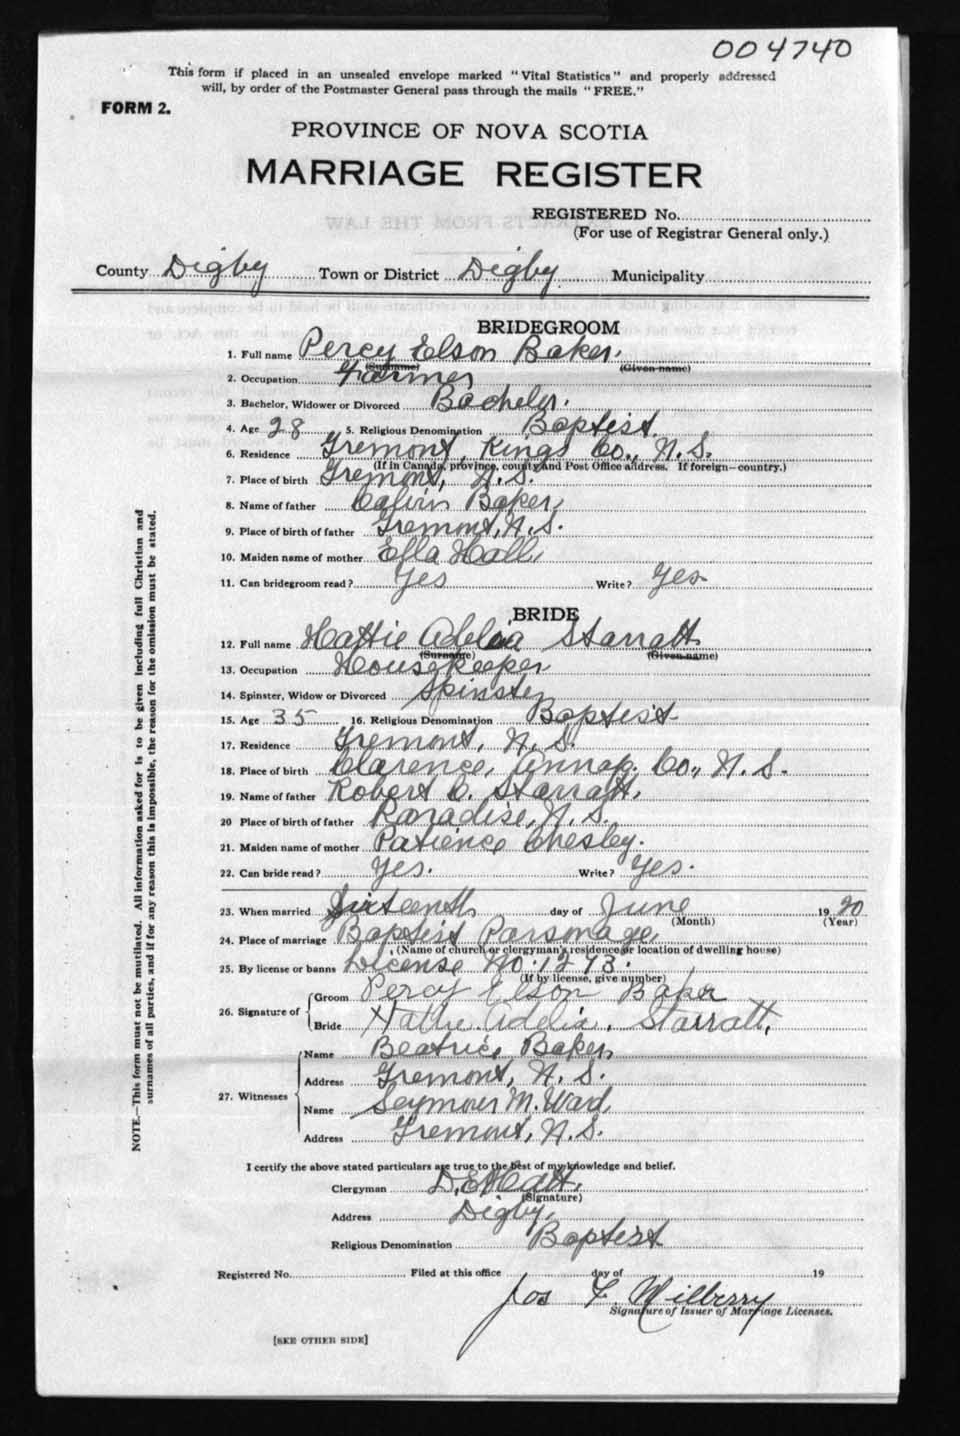 004740
This form if placed in an unsealed envelope marked "Vital Statistics" and properly addressed
will, by order of the Postmaster General pass through the mails "FREE."
FORM 2.
PROVINCE OF NOVA SCOTIA
MARRIAGE REGISTER
REGISTERED No.
(For use of Registrar General only.)
County Digby Town or District Digby Municipality
BRIDEGROOM
1. Full name Percy Elson Baker.
(Surname) (Given name)
2. Occupation Farmer
3. Bachelor, Widower or Divorced Bachelor.
4. Age 28 5. Religious Denomination Baptist.
6. Residence Tremont, Kings Co., N.S.
(If in Canada, province, county and Post Office address. If foreign—country.)
7. Place of birth Tremont, N.S.
8. Name of father Calvin Baker,
9. Place of birth of father Tremont, N.S.
10. Maiden name of mother Ella Hall,
11. Can bridegroom read? Yes Write? Yes
BRIDE
12. Full name Hattie Adelia Starratt
(Surname) (Given name)
13. Occupation Housekeeper
14. Spinster, Widow or Divorced Spinster
15. Age 35 16. Religious Denomination Baptist
17. Residence Tremont, N.S.
18. Place of birth Clarence, Annap. Co., N.S.
19. Name of father Robert C. Starratt,
20 Place of birth of father Paradise, N.S.
21. Maiden name of mother Patience Chesley.
22. Can bride read? Yes. Write? Yes.
23. When married Sixteenth day of June 1920
(Month) (Year)
24. Place of marriage Baptist Parsonage
(Name of church or clergyman's residence or location of dwelling house)
25. By license or banns License No. 1293.
(If by license, give number)
26. Signature of Groom Percy Elson Baker
Bride Hattie Adelia. Starratt,
27. Witnesses Name Beatrice Baker,
Address Tremont, N.S.
Name Seymour M. Ward,
Address Tremont, N.S.
I certify the above stated particulars are true to the best of my knowledge and belief.
Clergyman D. E. Hatt,
(Signature)
Address Digby,
Religious Denomination Baptist
Registered No. Filed at this office day of 19
Jos F. Milberry
Signature of Issuer of Marriage Licenses.
[SEE OTHER SIDE]
NOTE.—This form must not be mutilated. All information asked for is to be given including full Christian and
surnames of all parties, and if for any reason this is impossible, the reason for the omission must be stated.